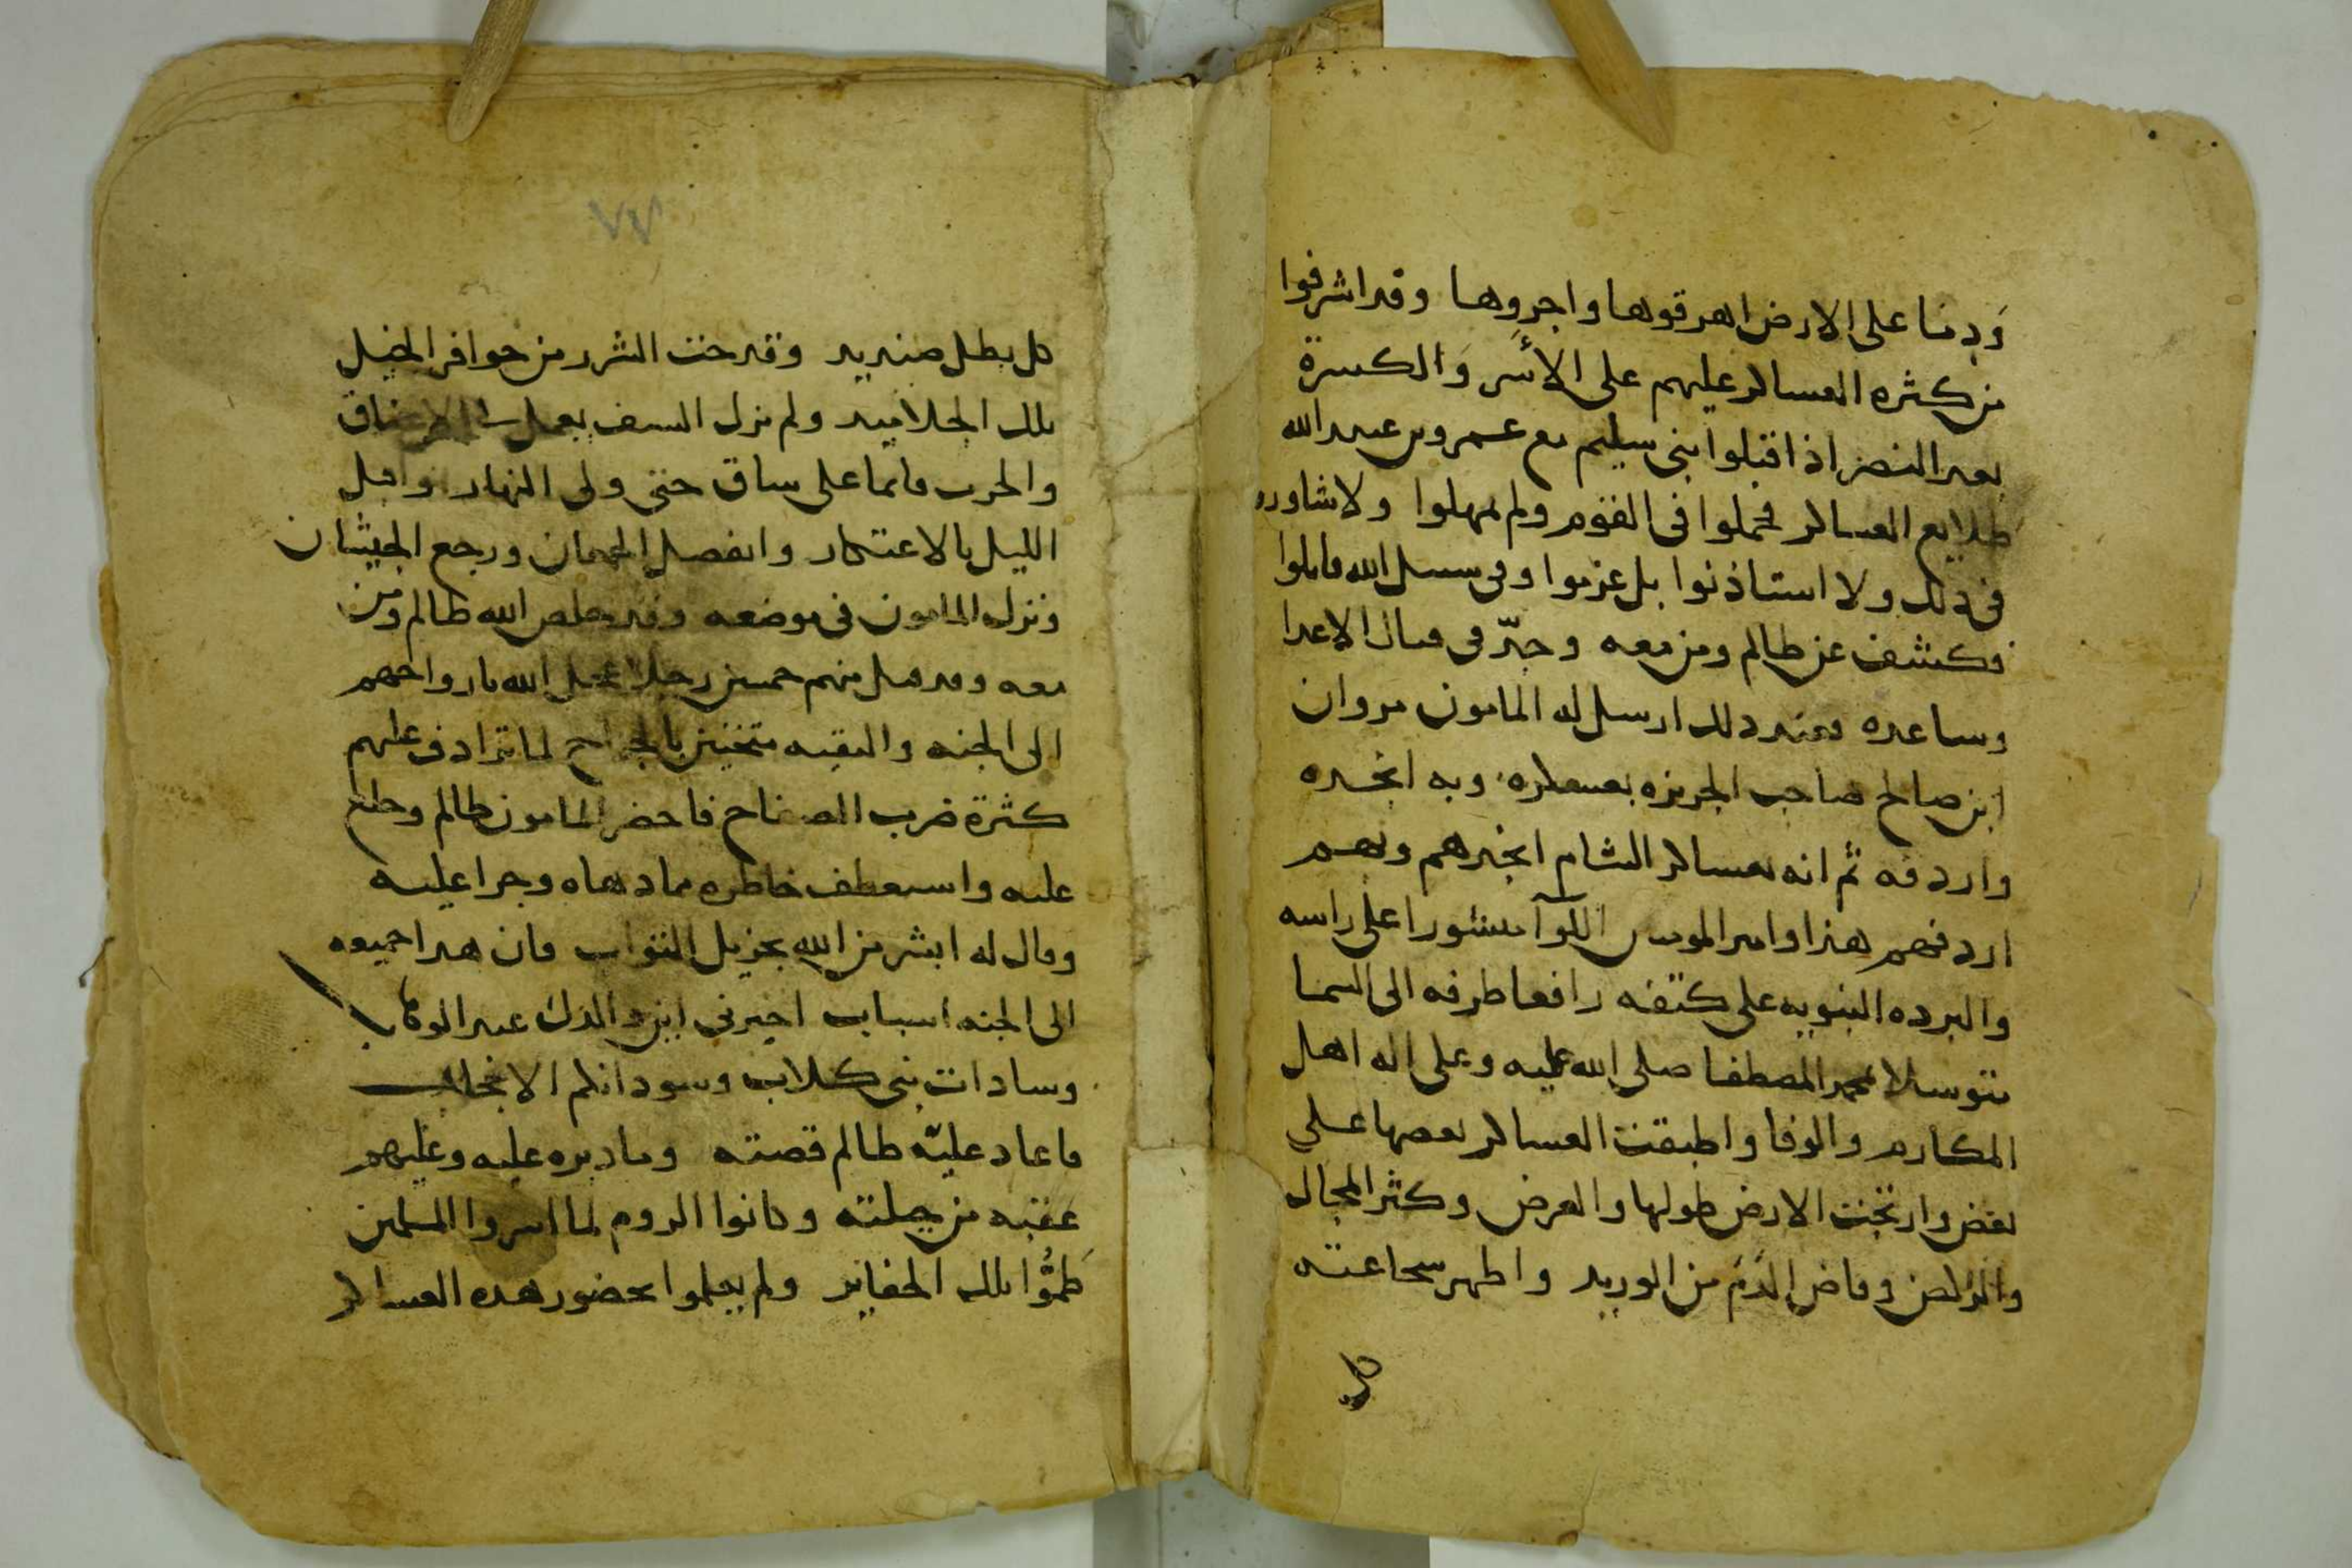 ودما على الارض اهرقوها واجروها وقد اشرفوا
من كثره العساكر عليهم على الأسر والكسرة
بعد النصر اذ اقبلوا بنى سليم مع عمرو بن عبيد الله
طلايع العساكر فحملوا فى القوم ولم يمهلوا ولا شاوروا
فى ذلك ولا استاذنوا بل عزموا وفى سبيل الله قاتلوا
فكشف عن ظالم ومن معه وجدّ فى قتال الاعدا
وساعده فعند ذلك ارسل له المامون مروان
ابن صالح صاحب الجزيزه بعسكره وبه انجده
واردفه ثم انه بعساكر الشام انجدهم وبهم
اردفهم هذا وامير المومنين اللوآ منشورا على راسه
والبرده النبويه على كتفه رافعا طرفه الى السما
متوسلا بمحمد المصطفا صلى الله عليه وعلى اله اهل
المكارم والوفا واطبقت العساكر بعضها على
بعض وارتجت الارض طولها والعرض وكثر المجال
والركض وفاض الدم من الوريد واظهر شجاعته
كل
٧٧
كل بطل صنديد وقدحت الشرر من حوافر الخيل
تلك الجلاميد ولم يزل السيف يعمل
والحرب قائما على ساق حتى ولى النهار واقبل
الليل بالاعتكار وانفصل الجمعان ورجع الجيشان
ونزل المامون فى موضعه وقد خلص الله ظالم ومن
معه وقد قتل منهم خمسين رجلا عجل الله بارواحهم
الى الجنه والبقيه مثخنين بالجراح لما ترادف عليهم
كثرة ضرب الصفاح فاحضر المامون ظالم وخلع
عليه واستعطف خاطره مما دهاه وجرا عليه
وقال له ابشر من الله بجزيل الثواب فان هذا جميعه
الى الجنه اسباب اخبرنى اين والدك عبد الوهاب
وسادات بنى كلاب وسودانكم الانجاب
فاعاد عليه ظالم قصته وما دبره عليه وعليهم
عقبه من حيلته وكانوا الروم لما اسروا المسلمين
طمّوا تلك الحفاير ولم يعلموا بحضور هذه العساكر